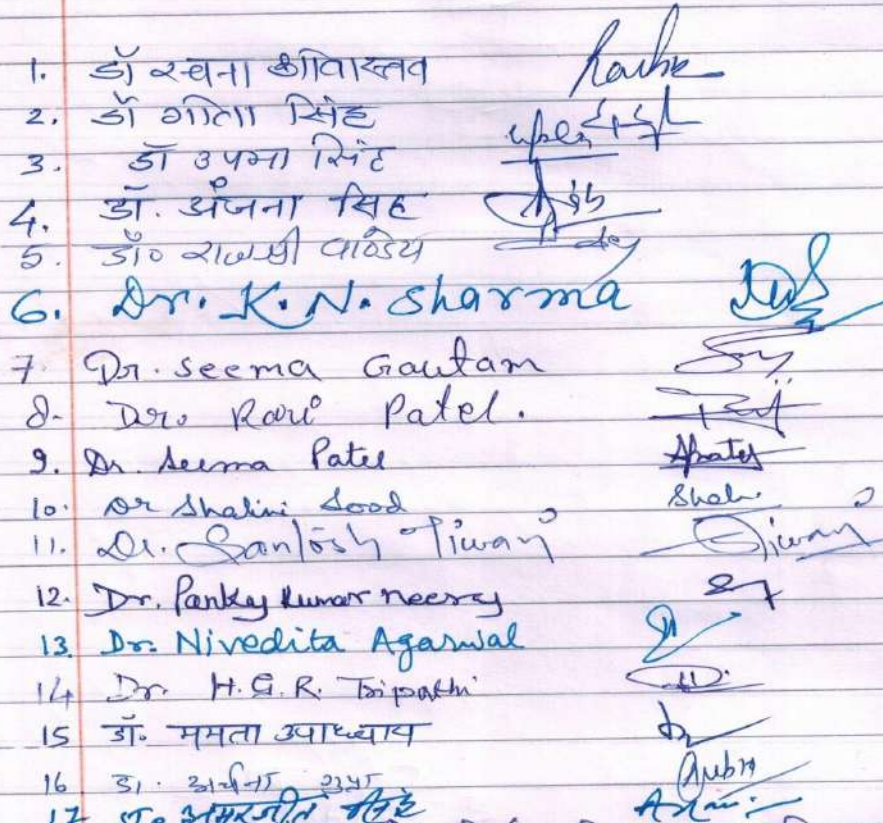 1. डॉ रचना श्रीवास्तव
2. डॉ गीता सिंह
3. डॉ उपमा सिंह
4. डॉ. अंजना सिंह
5. डॉ० राजश्री पाण्डेय
6. Dr. K. N. Sharma
7. Dr. Seema Gautam
8- Dr. Ravi Patel.
9. Dr. Seema Patel Spatel
10. Dr Shalini Sood Shalini
11. Dr. Santosh Tiwari Tiwari
12. Dr. Pankaj Kumar Neeraj
13. Dr. Nivedita Agarwal
14 Dr. H. G. R. Tripathi
15 डॉ. ममता उपाध्याय
16 डा. अर्चना
17 डा. अमरजीत सिंह